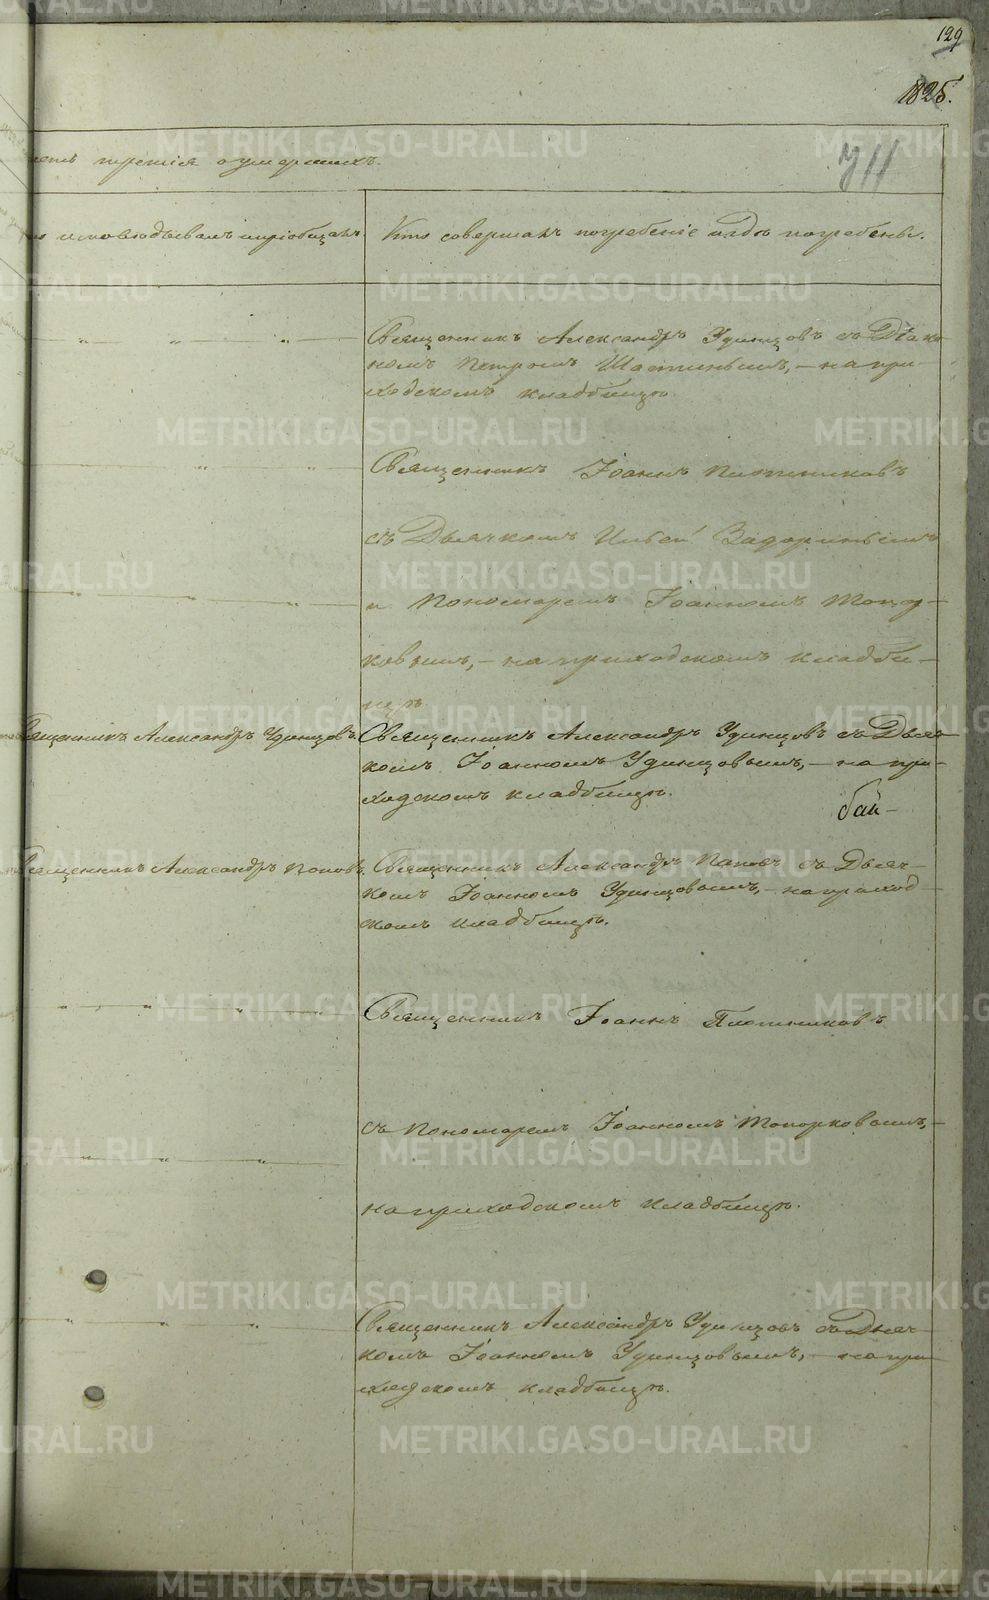 129
1825.
711
часть третія о умершихъ.
исповѣдывалъ и пріобщалъ.
Кто совершалъ погребеніе и гдѣ погребены.
Священникъ Александръ Удинцовъ съ Діако-
номъ Петромъ Шастинымъ, - на при-
ходскомъ кладбищѣ
Священникъ Іоаннъ Плотниковъ
съ Дьячкомъ Ильей Задоринымъ
и Пономаремъ Іоанномъ Топор-
ковымъ, - на приходскомъ кладби-
щѣ
Священникъ Александръ Удинцовъ.
Священникъ Александръ Удинцовъ съ Дьяч-
комъ Іоанномъ Удинцовымъ, - на при-
ходскомъ кладбищѣ.
бай-
Священникъ Александръ Поповъ.
Священникъ Александръ Поповъ съ Дьяч-
комъ Іоанномъ Удинцовымъ, - на приход-
скомъ кладбищѣ.
Священникъ Іоаннъ Плотниковъ
съ Пономаремъ Іоанномъ Топорковымъ, -
на приходскомъ кладбищѣ.
Священникъ Александръ Удинцовъ съ Дьяч-
комъ Іоанномъ Удинцовымъ, - на при-
ходскомъ кладбищѣ.
METRIKI.GASO-URAL.RU